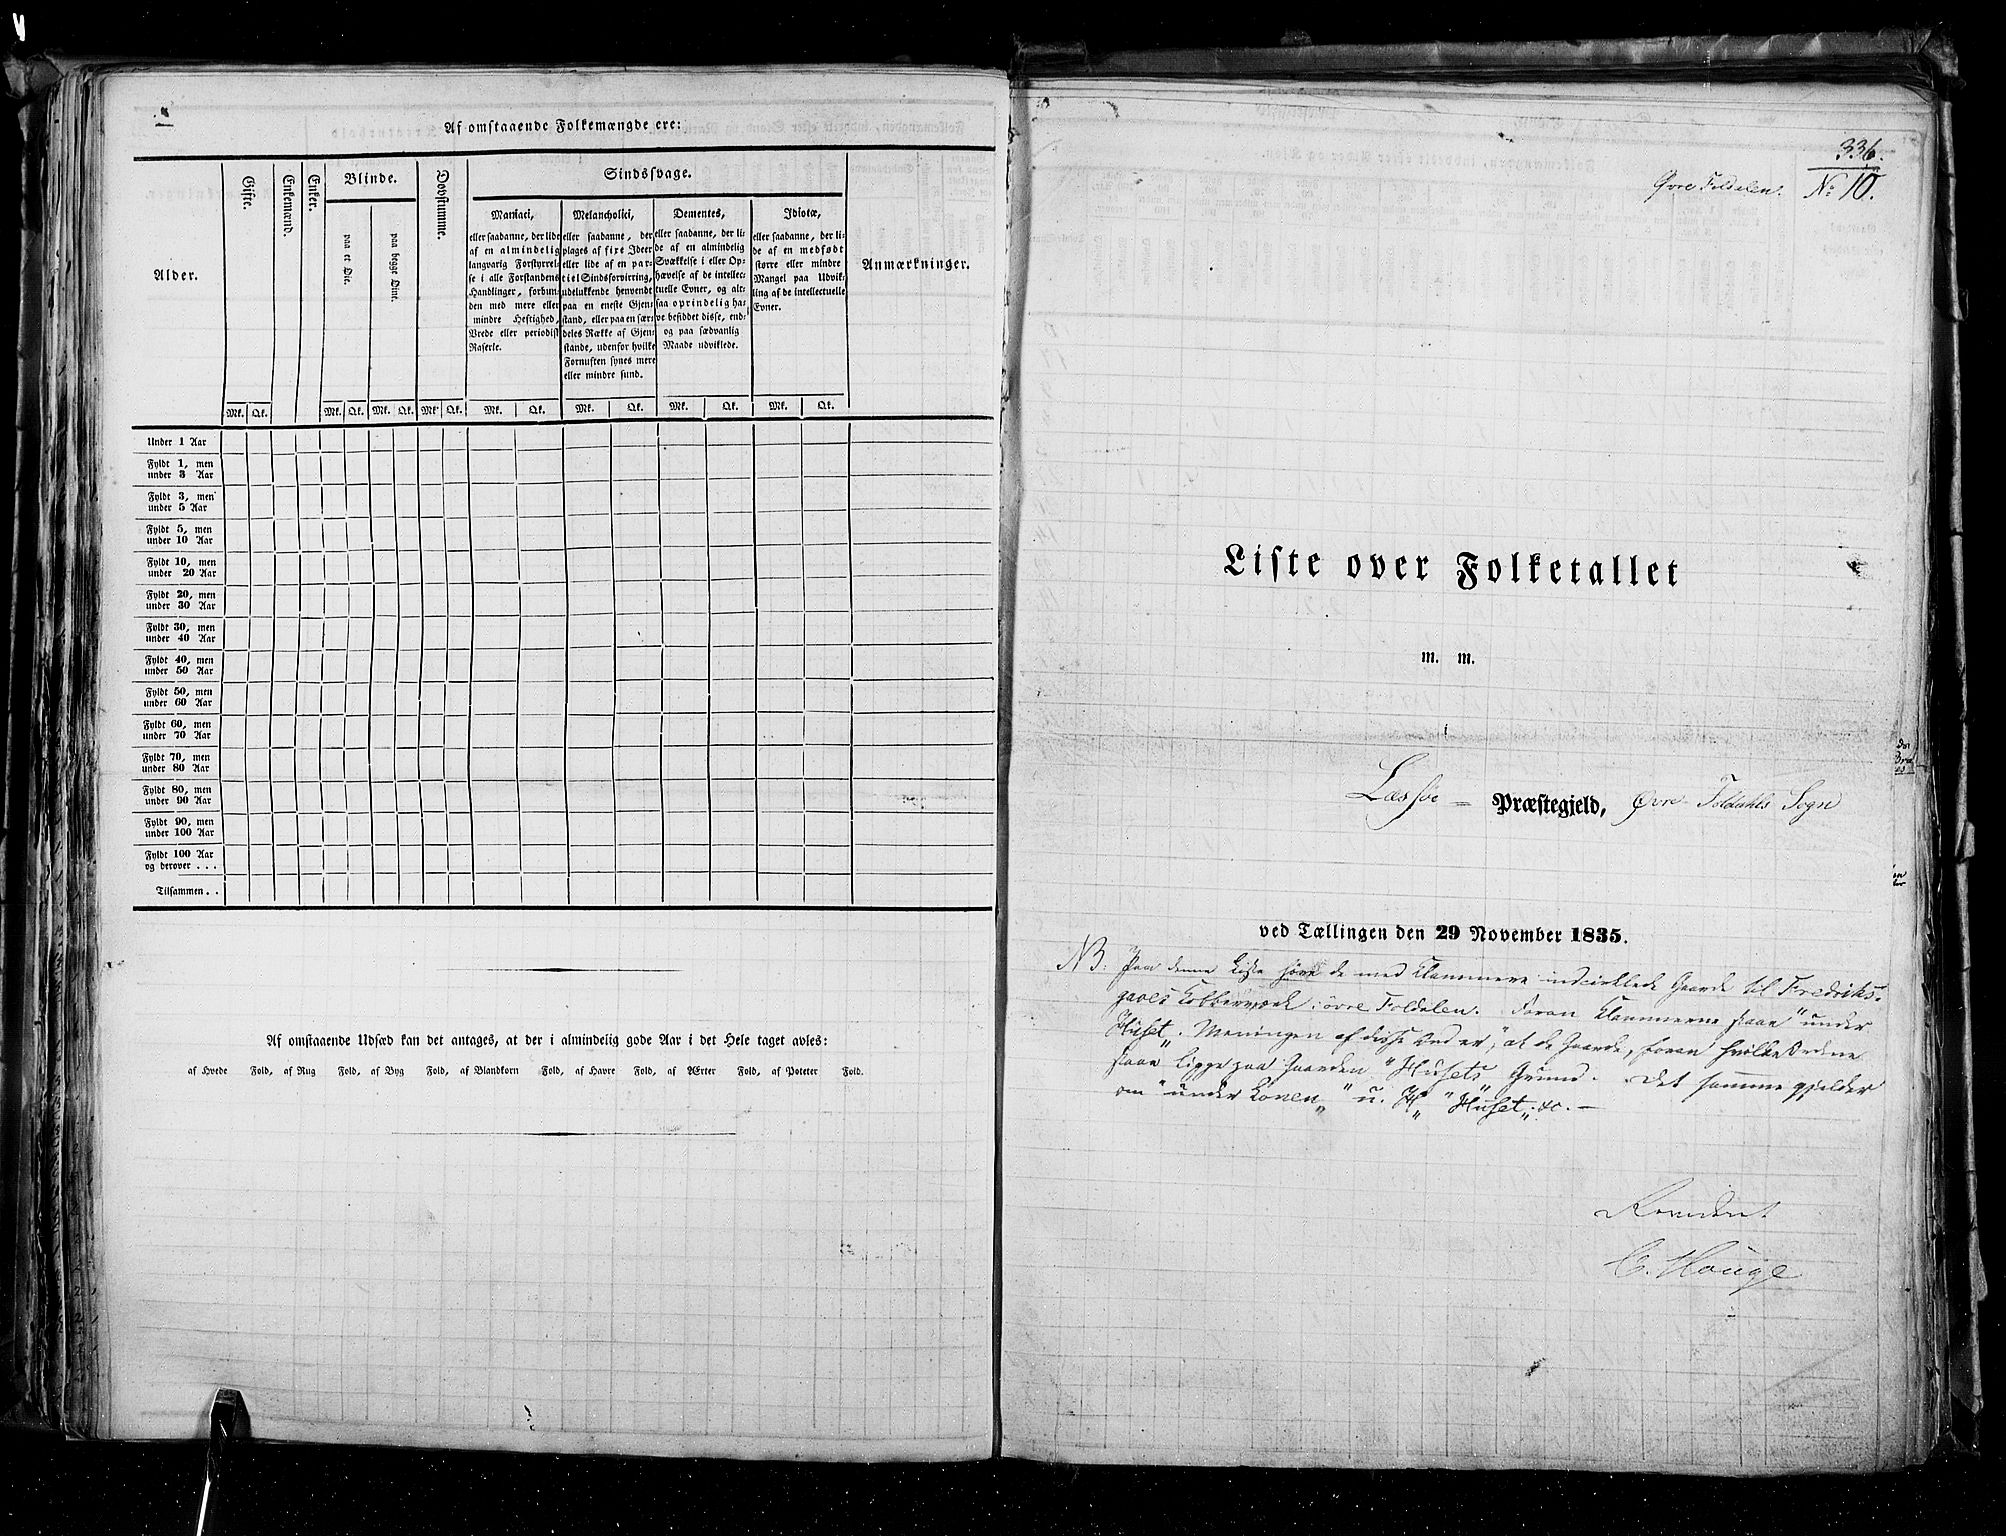 Af omstaaende Folkemængde ere:
Alder.
Gifte.
Enkemænd.
Enker.
Blinde.
paa et Øie.
paa begge Øine.
Døvstumme.
Sindssvage.
Maniaci,
eller saadanne, der lide
af en almindelig
langvarig Forstyrrel-
se i alle Forstandens
Handlinger, forbun-
den med mere eller
mindre Heftighed,
Vrede eller periodisk
Raserie.
Melancholici,
eller saadanne, der
plages af fixe Ideer
eller lide af en par-
tiel Sindsforvirring,
udelukkende henvende
paa en eneste Gjen-
stand, eller paa en sær-
deles Række af Gjen-
stande, udenfor hvilke
Fornuften synes mere
eller mindre sund.
Dementes,
eller saadanne, der li-
de af en almindelig
Svækkelse i eller Op-
hævelse af de intellec-
tuelle Evner, og alt-
saa oprindelig ha-
ve besiddet disse, end-
og paa sædvanlig
Maade udviklede.
Idiotæ,
eller saadanne, der li-
de af en medfødt
større eller mindre
Mangel paa Udvik-
ling af de intellectuelle
Evner.
Anmærkninger.
Mk. Qk. Mk. Qk. Mk. Qk. Mk. Qk. Mk. Qk. Mk. Qk. Mk. Qk. Mk. Qk.
Under 1 Aar
Fyldt 1, men
under 3 Aar
Fyldt 3, men
under 5 Aar
Fyldt 5, men
under 10 Aar
Fyldt 10, men
under 20 Aar
Fyldt 20, men
under 30 Aar
Fyldt 30, men
under 40 Aar
Fyldt 40, men
under 50 Aar
Fyldt 50, men
under 60 Aar
Fyldt 60, men
under 70 Aar
Fyldt 70, men
under 80 Aar
Fyldt 80, men
under 90 Aar
Fyldt 90, men
under 100 Aar
Fyldt 100 Aar
og derover . . .
Tilsammen . .
Af omstaaende Udsæd kan det antages, at der i almindelig gode Aar i det Hele taget avles:
af Hvede Fold, af Rug Fold, af Byg Fold, af Blandkorn Fold, af Havre Fold, af Ærter Fold, af Poteter Fold.
336.
Øvre Foldalen. No 10.
Liste over Folketallet
m. m.
i
Læssøe Præstegjeld, Øvre Foldahls Sogn
ved Tællingen den 29 November 1835.
NB. Paa denne Liste høre de med Klammere indcirklede Gaarde til Fredriks-
gaves Kobberværk i øvre Foldalen. Foran Klammerne staae "under
Huset". Meningen af disse Ord er, at de Gaarde, foran hvilke Ordene
staae ligge paa Gaarden "Husets" Grund. Det samme gjelder
om "under Lonen" "u. H" "Huset" &c. –
C. Houge